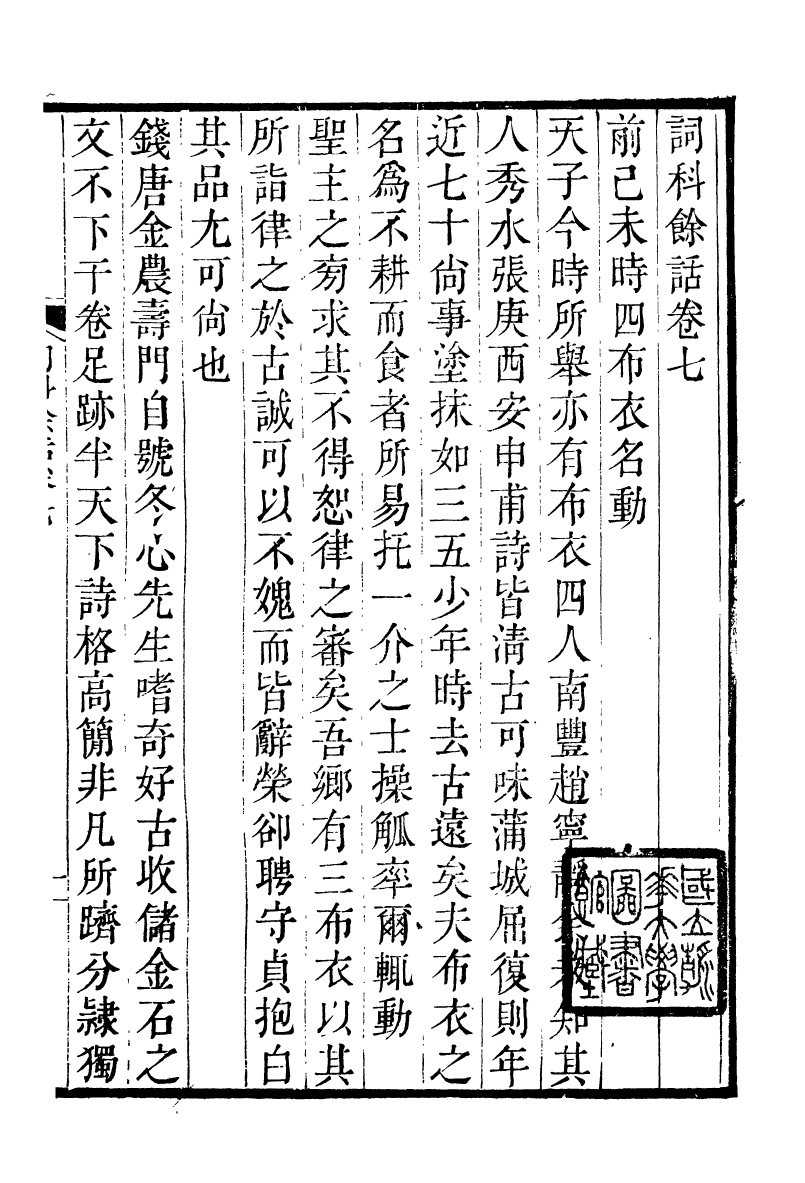 詞科餘話卷七
前己未時四布衣名動
天子今時所舉亦有布衣四人南豐趙寧靜知其
人秀水張庚西安申甫詩皆淸古可味蒲城屈復則年
近七十尙事塗抹如三五少年時去古遠矣夫布衣之
名爲不耕而食者所易托一介之士操觚率爾輒動
聖主之旁求其不得恕律之審矣吾鄉有三布衣以其
所詣律之於古誠可以不媿而皆辭榮卻聘守貞抱白
其品尢可尙也
錢唐金農壽門自號冬心先生嗜奇好古收儲金石之
文不下千卷足跡半天下詩格高簡非凡所躋分隷獨